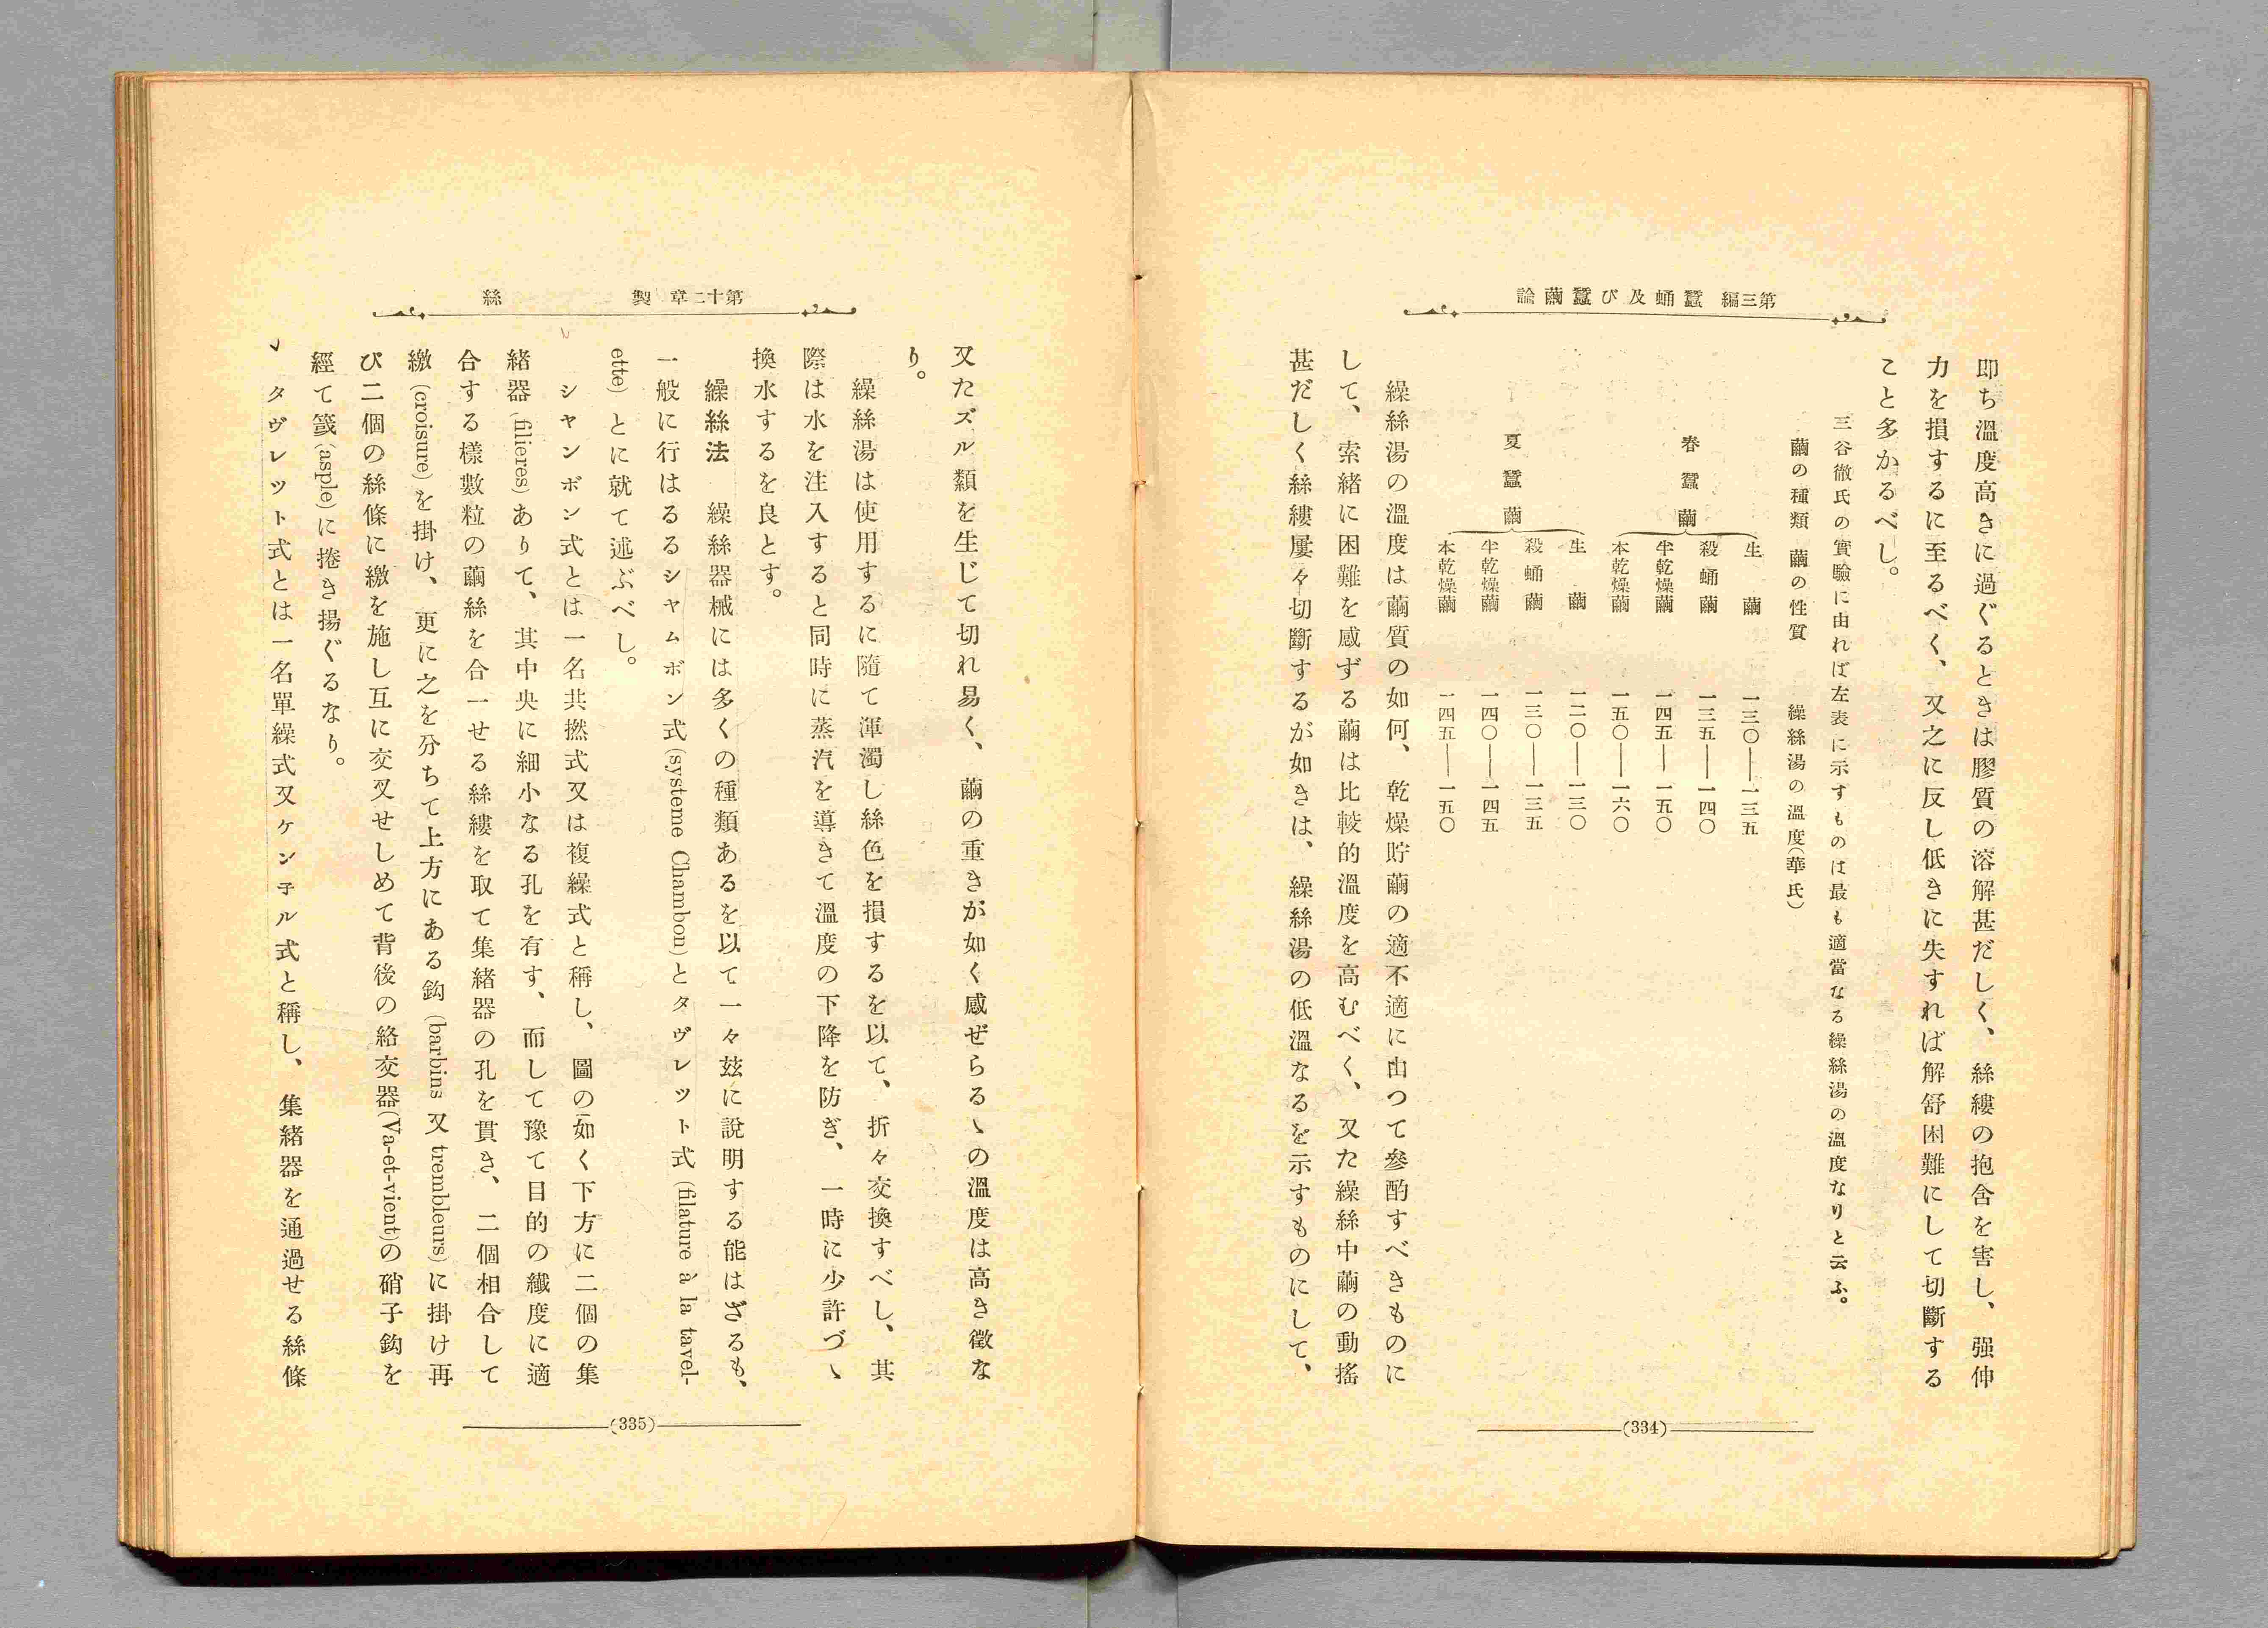 第三編　蠶蛹及び蠶繭論
即ち溫度高きに過ぐるときは膠質の溶解甚だしく、絲縷の抱合を害し、强伸
力を損するに至るべく、又之に反し低きに失すれば解舒困難にして切斷する
こと多かるべし。
三谷徹氏の實驗に由れば左表に示すものは最も適當なる繰絲湯の溫度なりと云ふ。
繭の種類　繭の性質　繰絲湯の溫度(華氏)
春蠶繭
生繭　一三〇――一三五
殺蛹繭　一三五――一四〇
半乾燥繭　一四五――一五〇
本乾燥繭　一五〇――一六〇
夏蠶繭
生繭　一二〇――一三〇
殺蛹繭　一三〇――一三五
半乾燥繭　一四〇――一四五
本乾燥繭　一四五――一五〇
繰絲湯の溫度は繭質の如何、乾燥貯繭の適不適に由つて參酌すべきものに
して、索緒に困難を感ずる繭は比較的溫度を高むべく、又た繰絲中繭の動搖
甚だしく絲縷屢々切斷するが如きは、繰絲湯の低溫なるを示すものにして、
(334)
第十二章　製絲
又たズル類を生じて切れ易く、繭の重きが如く感ぜらるゝの溫度は高き徵な
り。
繰絲湯は使用するに隨て渾濁し絲色を損するを以て、折々交換すべし、其
際は水を注入すると同時に蒸汽を導きて溫度の下降を防ぎ、一時に少許づゝ
換水するを良とす。
繰絲法　繰絲器械には多くの種類あるを以て一々玆に說明する能はざるも、
一般に行はるシャムボン式(systeme Chambon)とタヴレット式(filature à la tavel-
ette)とに就て述ぶべし。
シャンボン式とは一名共撚式又は複繰式と稱し、圖の如く下方に二個の集
緒器(filieres)ありて、其中央に細小なる孔を有す、而して豫て目的の纎度に適
合する樣數粒の繭絲を合一せる絲縷を取て集緒器の孔を貫き、二個相合して
繳(croisure)を掛け、更に之を分ちて上方にある鈎(barbins又trembleurs)に掛け再
び二個の絲條に繳を施し互に交叉せしめて背後の絡交器(Va-et-vient)の硝子鈎を
經て籰(asple)に捲き揚ぐるなり。
タヴレット式とは一名單繰式又ケンネル式と稱し、集緒器を通過せる絲條
(335)